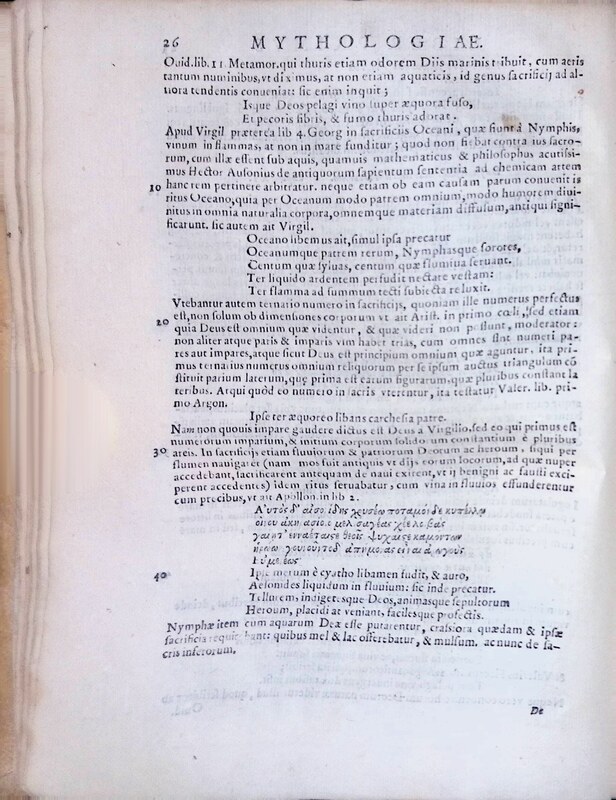 26 MYTHOLOGIAE.
Ouid.lib.11 Metamor.qui thuris etiam odorem Diis marinis tribuit, cum aeris
tantum numinibus,vt diximus, at non etiam aquaticis, id genus sacrificij ad al-
tiora tendentis conueniat: sic enim inquit;
Isque Deos pelagi vino super æquora fuso,
Et pecoris fibris, & fumo thuris adorat.
Apud Virgil præterea lib 4. Georg in sacrificiis Oceani, quæ fiunt à Nymphis,
vinum in flammas, at non in mare funditur; quod non fiebat contra ius sacro-
rum, cum illæ essent sub aquis, quamuis mathematicus & philosophus acutissi-
mus Hector Ausonius de antiquorum sapientum sententia ad chemicam artem
10 hanc rem pertinere arbitratur. neque etiam ob eam causam parum conuenit is
ritus Oceano,quia per Oceanum modo patrem omnium,modo humorem diui-
nitus in omnia naturalia corpora,omnemque materiam diffusum,antiqui signi-
ficarunt. sic autem ait Virgil.
Oceano libemus ait,simul ipsa precatur
Oceanumque patrem rerum, Nymphasque sorores,
Centum quæ syluas, centum quæ flumina seruant.
Ter liquido ardentem perfudit nectare vestam:
Ter flamma ad summum tecti subiecta reluxit.
Vtebantur autem ternario numero in sacrificijs, quoniam ille numerus perfectus
20 est,non solum ob dimensiones corporum vt ait Arist. in primo cœli, sed etiam
quia Deus est omnium quæ videntur, & quæ videri non possunt, moderator:
non aliter atque paris & imparis vim habet trias, cum omnes sint numeri pa-
res aut impares,atque sicut Deus est principium omnium quæ aguntur, ita pri-
mus ternarius numerus omnium reliquorum per se ipsum auctus triangulum cō
stituit parium laterum,quę prima est earum figurarum,quæ pluribus constant la
teribus. Atqui quòd eo numero in sacris vterentur, ita testatur Valer. lib. pri-
mo Argon.
Ipse ter æquoreo libans carchesia patre.
Nam non quouis impare gaudere dictus est Deus a Virgilio,sed eo qui primus est
numerorum imparium,& initium corporum solidorum constantium è pluribus
30 areis. In sacrificijs etiam fluuiorum & patriorum Deorum ac heroum, siqui per
flumen nauigaret (nam mos fuit antiquis vt dijs eorum locorum,ad quæ nuper
accedebant,sacrificarent antequam de naui exirent,vt ij benigni ac fausti exci-
perent accedentes) idem ritus seruabatur; cum vina in fluuios effunderentur
cum precibus, vt ait Apollon.in lib 2.
Ipse merum è cyatho libamen fudit, & auro,
40 Aesonides liquidum in fluuium: sic inde precatur.
Tellurem, indigetesque Deos,animasque sepultorum
Heroum, placidi at veniant, facilesque profectis.
Nymphæ item cum aquarum Deæ esse putarentur, crassiora quædam & ipsæ
sacrificia requirebant: quibus mel & lac offerebatur, & mulsum. ac nunc de sa-
cris inferorum.
De